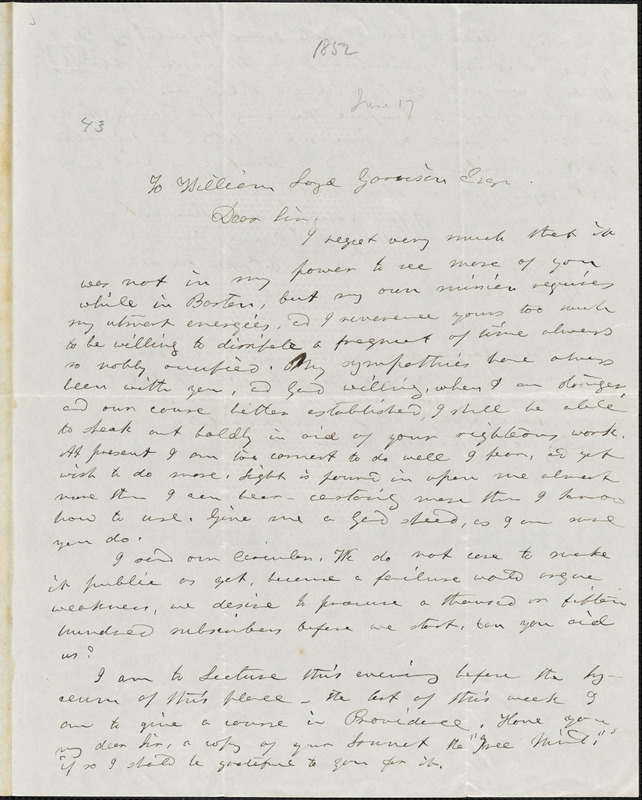 1852
June 17
43
To William Loyd Garrison Esqr.
Dear Sir,
I regret very much that it
was not in my power to see more of you
while in Boston, but my own mission requires
my utmost energies, and I reverence yours too much
to be willing to dissipate a fragment of time always
so nobly occupied. My sympathies have always
been with you, and God willing, when I am stronger,
and our cause better established, I shall be able
to speak out boldly in aid of your righteous work.
At present I am too to do well I fear, and yet
wish to do more. Light is poured in upon me almost
more than I can bear - certainly more than I know
how to use. Give me a God speed, as I am sure
you do.
I send our Circular. We do not care to make
it public as yet, because a failure would argue
weakness, we desire to procure a thousand or fifteen
hundred subscribers before we start, can you aid
us?
I am to Lecture this evening before the Ly-
ceum of this place - the last of this week I
am to give a course in Providence. Have you
my dear Sir, a copy of your Sonnet the "Free Mind,"
if so I should be grateful to you for it.